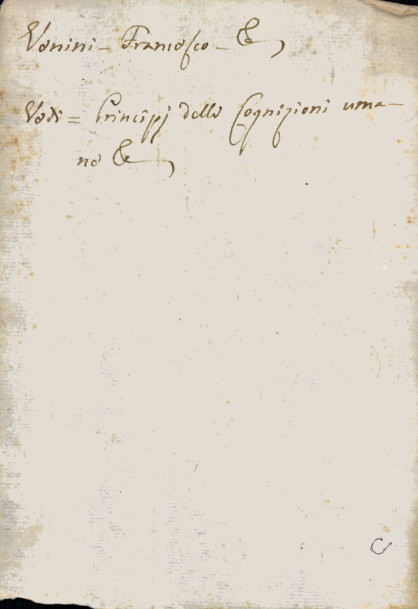 Vonini - Francesco - &
Vedi = Principj delle Cognizioni uma-
ne &